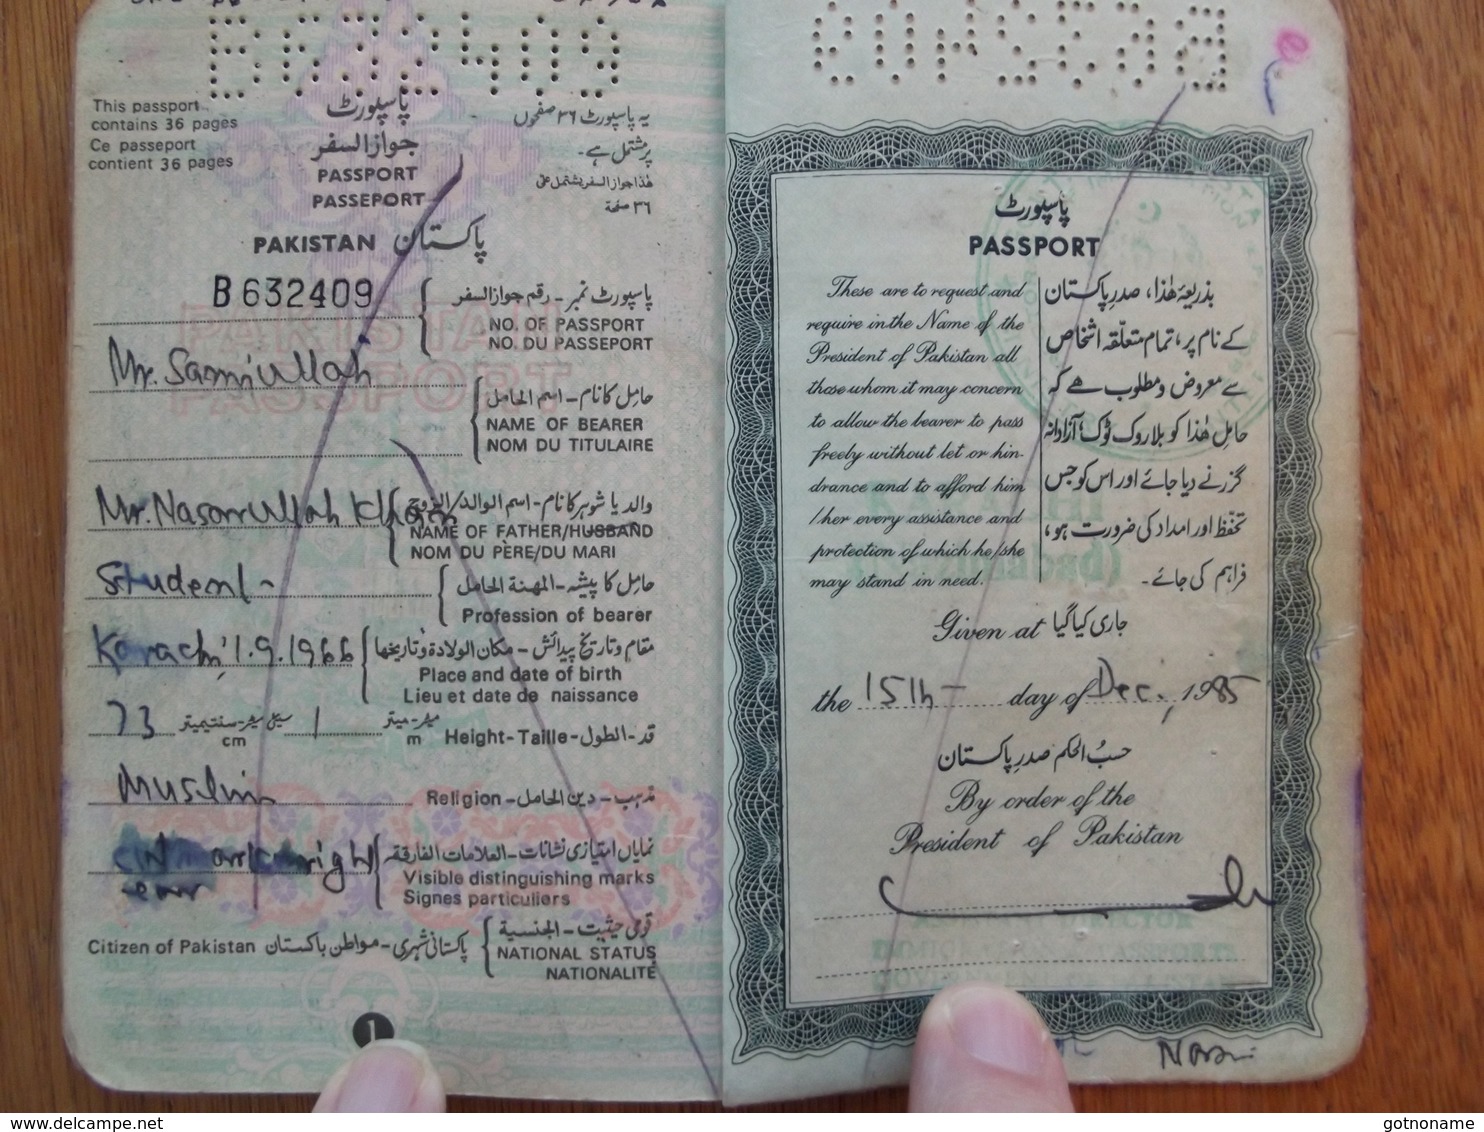 B632409
This passport
contains 36 pages
Ce passeport
contient 36 pages
پاسپورٹ
جواز السفر
PASSPORT
PASSEPORT
یہ پاسپورٹ ۳۶ صفحوں
پرشتمل ہے۔
ھٰذا جواز السفر یشتمل علیٰ
۳۶ صفحة
PAKISTAN پاکستان
B632409
پاسپورٹ نمبر - رقم جواز السفر
NO. OF PASSPORT
NO. DU PASSEPORT
Mr. Samiullah
حامِل کا نام - اسم الحامل
NAME OF BEARER
NOM DU TITULAIRE
Mr. Nasarullah Khan
والد یا شوہر کا نام - اسم الوالد/الزوج
NAME OF FATHER/HUSBAND
NOM DU PÈRE/DU MARI
Student -
حامِل کا پیشہ - المهنة الحامل
Profession of bearer
Karachi, 1.9.1966
مقام و تاریخ پیدائش - مكان الولادة وتاريخها
Place and date of birth
Lieu et date de naissance
73 سینٹی میٹر - سنتیمیتر 1 میٹر - میتر
cm m Height-Taille - قد - الطول
Muslim Religion - مذہب - دین الحامل
mark right
ear
نمایاں امتیازی نشانات - العلامات الفارقة
Visible distinguishing marks
Signes particuliers
Citizen of Pakistan پاکستانی شہری - مواطن باكستان
قومی حیثیت - الجنسية
NATIONAL STATUS
NATIONALITÉ
1
B632409
پاسپورٹ
PASSPORT
These are to request and
require in the Name of the
President of Pakistan all
those whom it may concern
to allow the bearer to pass
freely without let or hin-
drance and to afford him
/her every assistance and
protection of which he/she
may stand in need.
بذریعۂ ھٰذا، صدرِ پاکستان
کے نام پر، تمام متعلّقہ اشخاص
سے معروض و مطلوب ھے کہ
حامِل ھٰذا کو بلا روک ٹوک آزادانہ
گزرنے دیا جائے اور اس کو جس
تحفّظ اور امداد کی ضرورت ہو،
فراہم کی جائے۔
Given at جاری کیا گیا
the 15th - day of Dec., 1985
حسبُ الحکم صدرِ پاکستان
By order of the
President of Pakistan
delcampe.net
gotnoname